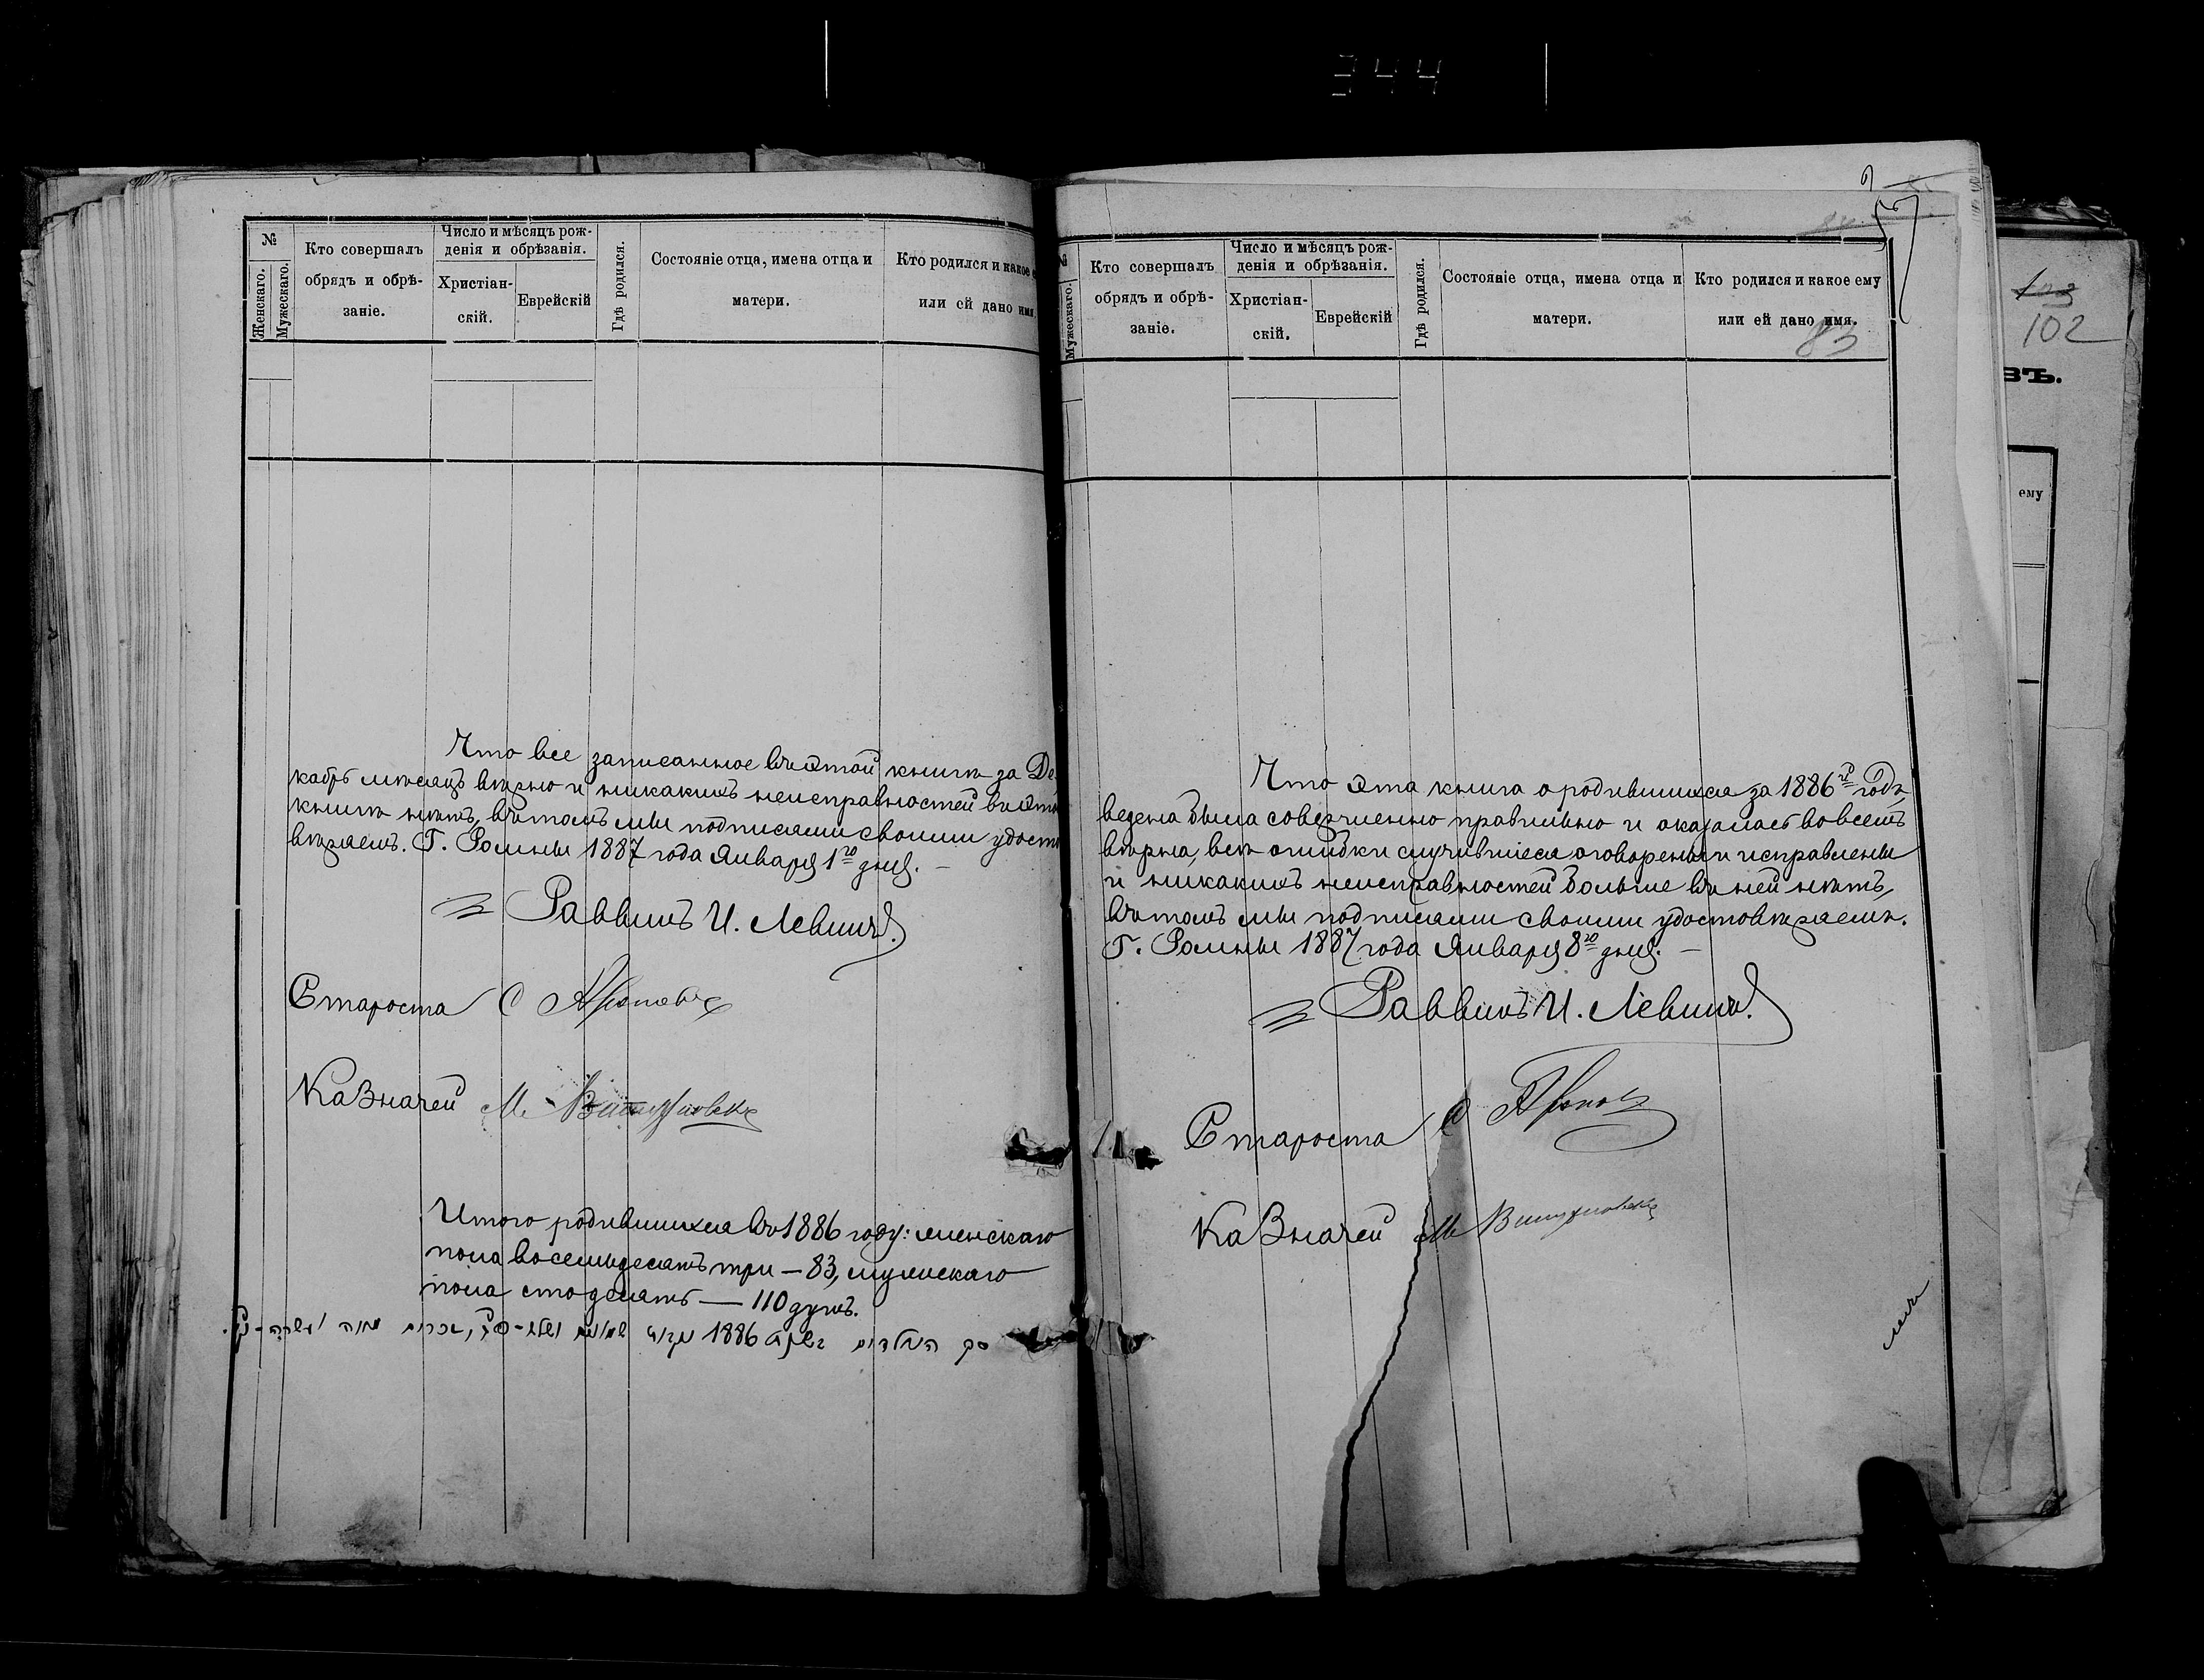 344
№
Женскаго.
Мужескаго.
Кто совершалъ
обрядъ и обрѣ-
заніе.
Число и мѣсяцъ рож-
денія и обрѣзанія.
Христіан-
скій.
Еврейскій
Гдѣ родился.
Состояніе отца, имена отца и
матери.
Кто родился и какое е
или ей дано имя
Что все записанное въ этой книгѣ за Де-
кабрь мѣсяцъ вѣрно и никакихъ неисправностей въ этой
книгѣ нѣтъ, въ томъ мы подписами своими удосто
вѣряемъ. Г. Ромны 1887 года Января 1го дня. —
Раввинъ И. Левинъ.
Староста С
Казначей М.
Итого родившихся въ 1886 году: женскаго
пола восемьдесятъ три — 83, мужскаго
пола сто десять — 110 душъ.
סך הנולדים בשנת 1886 שמונים ושלש - פג, זכרים מאה ועשרה - קי.
№
Мужескаго.
Кто совершалъ
обрядъ и обрѣ-
заніе.
Число и мѣсяцъ рож-
денія и обрѣзанія.
Христіан-
скій.
Еврейскій
Гдѣ родился.
Состояніе отца, имена отца и
матери.
Кто родился и какое ему
или ей дано имя.
83
Что эта книга о родившихся за 1886й годъ
ведена была совершенно правильно и оказалась во всемъ
вѣрна, всѣ ошибки случившіеся оговорены и исправлены
и никакихъ неисправностей больше въ ней нѣтъ,
въ томъ мы подписами своими удостовѣряемъ.
Г. Ромны 1887 года Января 8го дня. —
Раввинъ И. Левинъ.
Староста С
Казначей М
102
въ.
ему